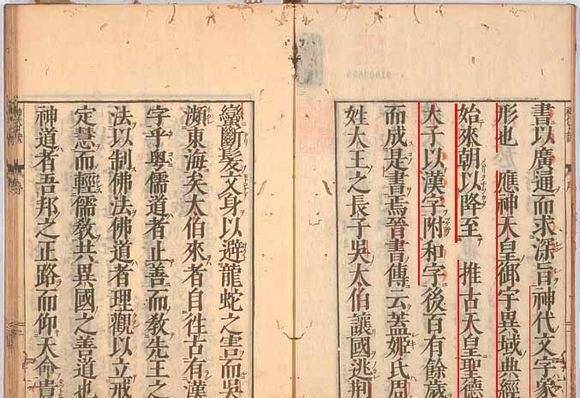 書以廣通而求深旨神代文字象
形也　應神天皇御宇異域典經
始來朝以降至　推古天皇聖德
大子以漢字附和字後百有餘歲
而成是書焉晉書傳云蓋姬氏周
姓大王之長子吳太伯讓國逃荆
蠻斷髮文身以避龍蛇之害而吳
瀕東海矣太伯來者自徃古有漢
字乎與儒道者止善而敎先王之
法以制佛法佛道者理觀以立戒
定慧而輕儒敎共異國之善道也
神道者吾邦之正路而仰天命貴